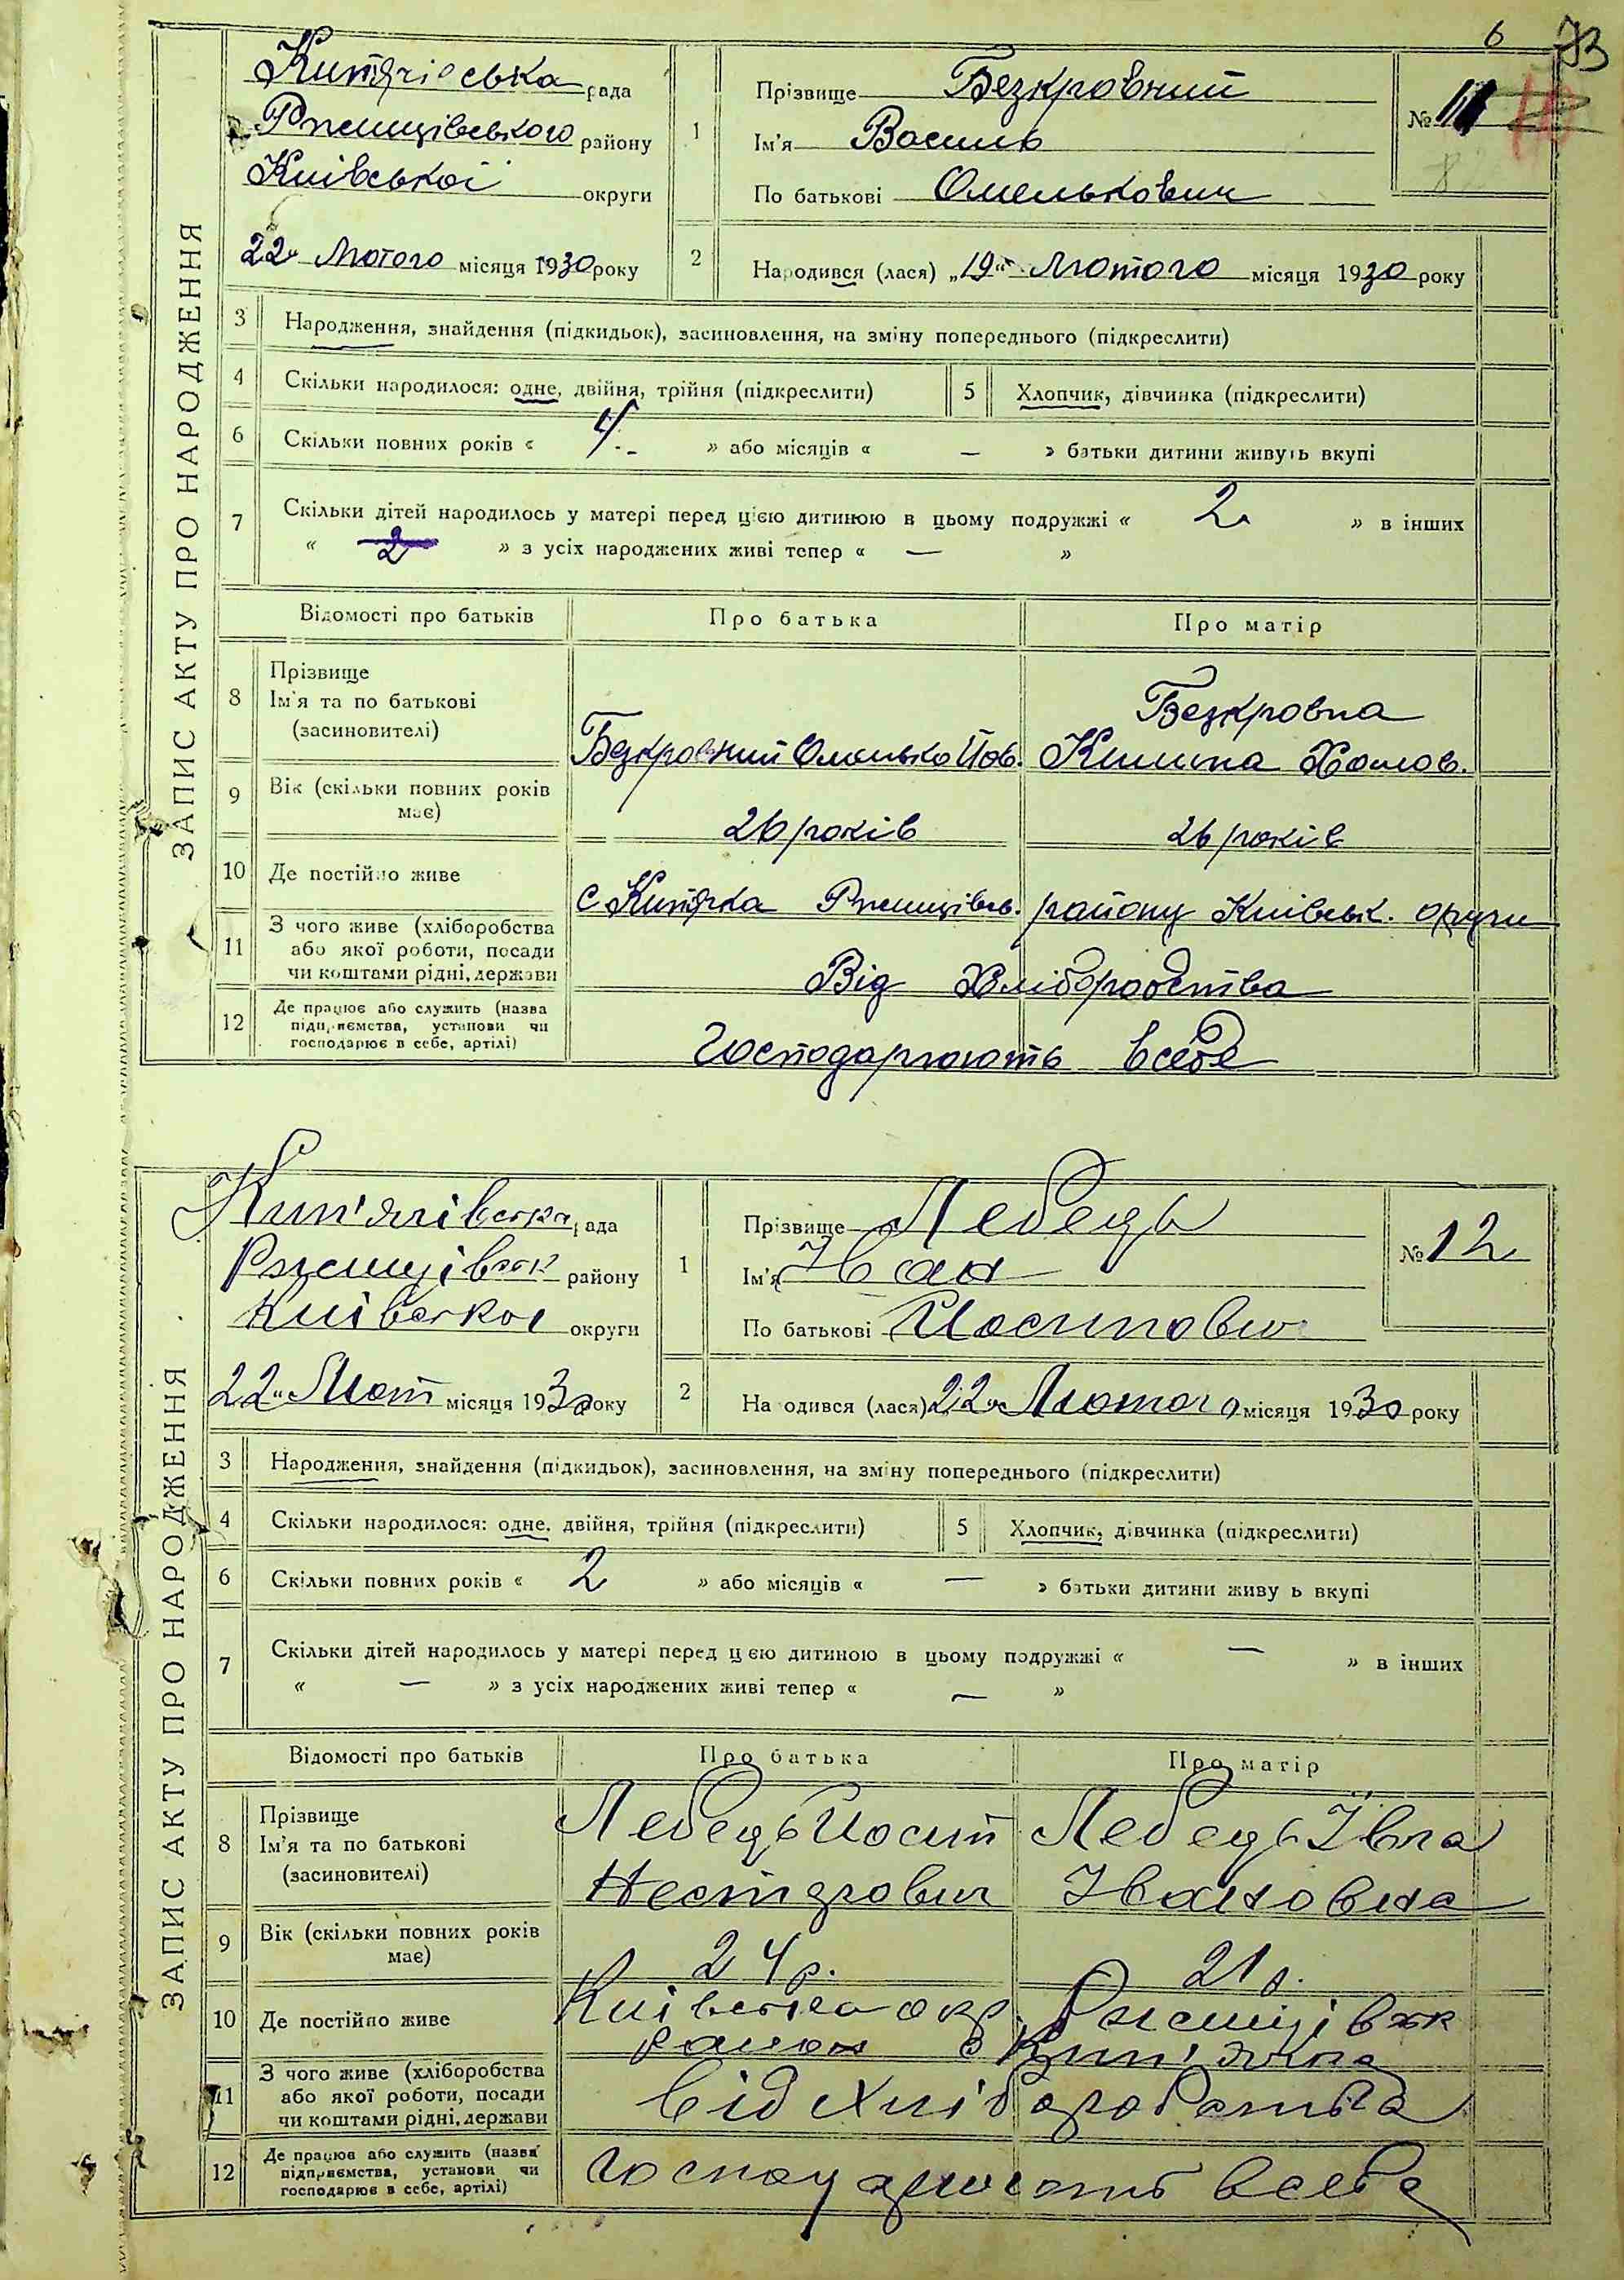 6 73
ЗАПИС АКТУ ПРО НАРОДЖЕННЯ
рада
Ржищівського району
Київської округи
22 Лютого місяця 1930 року
1
Прізвище Безкровний
Ім'я Василь
По батькові Омелькович
№ 11
2
Народився (лася) „19" Лютого місяця 1930 року
3 Народження, знайдення (підкидьок), засиновлення, на зміну попереднього (підкреслити)
4 Скільки народилося: одне, двійня, трійня (підкреслити) 5 Хлопчик, дівчинка (підкреслити)
6 Скільки повних років « 4 » або місяців « — » батьки дитини живуть вкупі
7 Скільки дітей народилось у матері перед цією дитиною в цьому подружжі « 2 » в інших
« 2 » з усіх народжених живі тепер « — »
Відомості про батьків Про батька Про матір
8 Прізвище
Ім'я та по батькові
(засиновителі)
Безкровний Омелько Йов.
Безкровна
Килина Хомов.
9 Вік (скільки повних років
має)
26 років 26 років
10 Де постійно живе
с Кипячка Ржищівсь. району Київськ. округи
11 З чого живе (хліборобства
або якої роботи, посади
чи коштами рідні, держави
Від Хліборобства
12 Де працює або служить (назва
підприємства, установи чи
господарює в себе, артілі)
Господарюють в себе
ЗАПИС АКТУ ПРО НАРОДЖЕННЯ
рада
Ржищівськ району
округи
22 Лют місяця 1930 року
1
Прізвище Лебедь
Ім'я Іван
По батькові Йосипович
№ 12
2
На одився (лася) 22 Лютого місяця 1930 року
3 Народження, знайдення (підкидьок), засиновлення, на зміну попереднього (підкреслити)
4 Скільки народилося: одне, двійня, трійня (підкреслити) 5 Хлопчик, дівчинка (підкреслити)
6 Скільки повних років « 2 » або місяців « — » батьки дитини живу ь вкупі
7 Скільки дітей народилось у матері перед ц єю дитиною в цьому подружжі « — » в інших
« — » з усіх народжених живі тепер « — »
Відомості про батьків Про батька Про матір
8 Прізвище
Ім'я та по батькові
(засиновителі)
Лебедь Йосип
Нестерович
Лебедь Ївга
Івановна
9 Вік (скільки повних років
має)
24 р. 21 р.
10 Де постійно живе
Київська окр. Ржищівськ
район с Кип'ячка
11 З чого живе (хліборобства
або якої роботи, посади
чи коштами рідні, держави
від хліборобства
12 Де працює або служить (назва
підприємства, установи чи
господарює в себе, артілі)
господарюють в себе